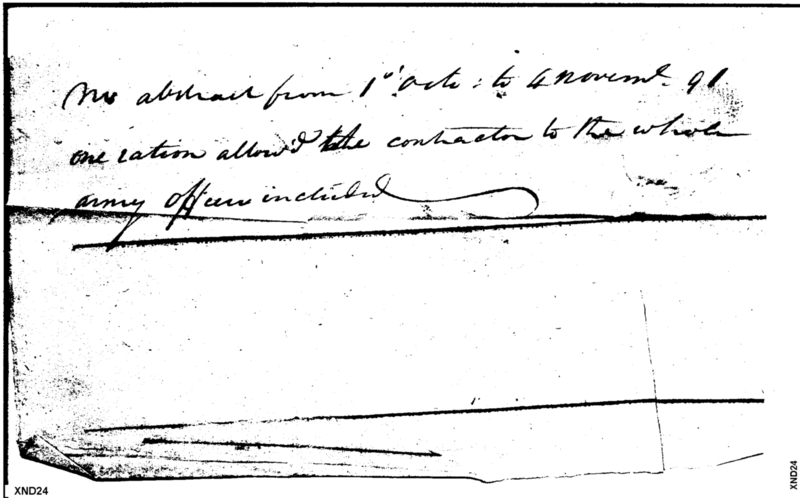 abstract from 1st Octo: to 4 Novemr. 91
one ration allow'd the contractor to the whole
army officers included
XND24
XND24